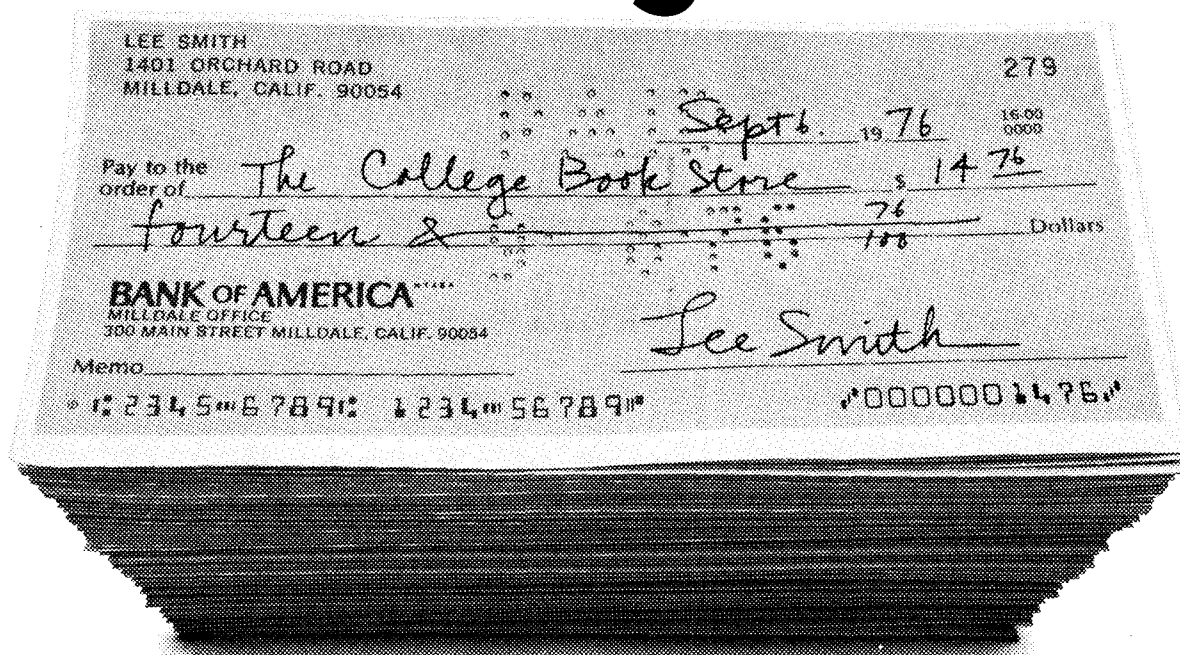 LEE SMITH
1401 ORCHARD ROAD
MILLDALE, CALIF. 90054
279
Sept 6. 1976
16-00
0000
Pay to the
order of The College Book Store $ 14 76
fourteen & 76/100 Dollars
BANK OF AMERICA
MILLDALE OFFICE
300 MAIN STREET MILLDALE, CALIF. 90054
Lee Smith
Memo
⑆2345⑈6789⑆ 1234⑈56789⑈ ⑇0000001476⑇